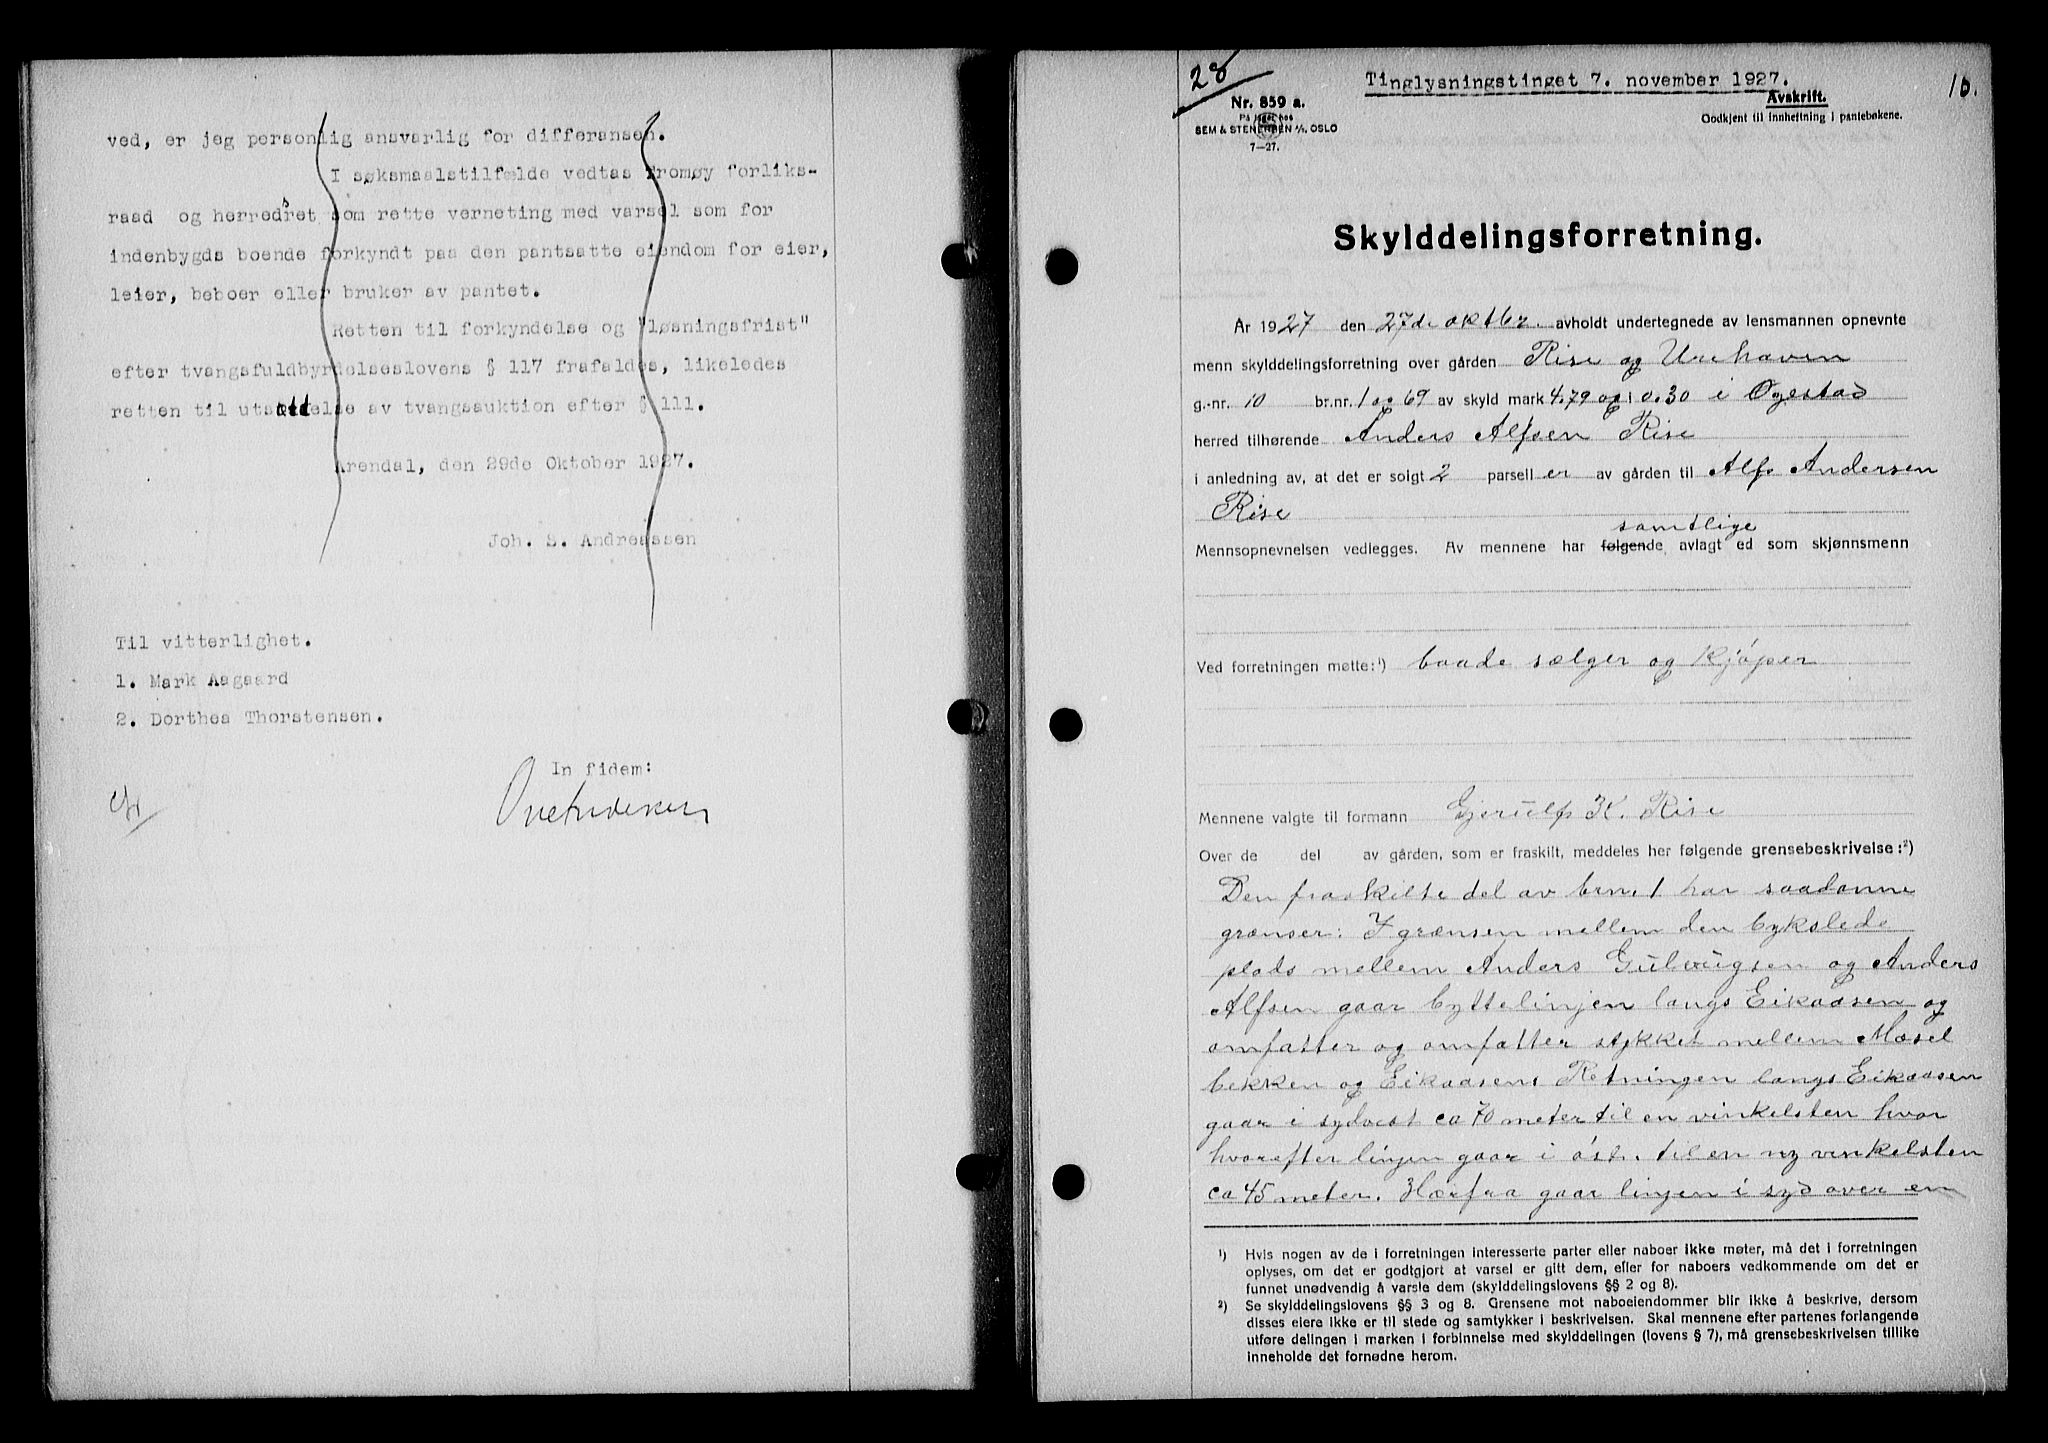 ved, er jeg personlig ansvarlig for differansen.
I søksmaalstilfælde vedtas Tromøy forliks-
raad og herredsret som rette verneting med varsel som for
indenbygds boende forkyndt paa den pantsatte eiendom for eier,
leier, beboer eller bruker av pantet.
Retten til forkyndelse og "løsningsfrist"
efter tvangsfuldbyrdelseslovens § 117 frafaldes, likeledes
retten til utstedelse av tvangsauktion efter § 111.
Arendal, den 29de Oktober 1927.
Joh. S. Andreassen
Til vitterlighet.
1. Mark Aagaard
2. Dorthea Thorstensen.
In fidem:
28
Tinglysningstinget 7. november 1927.
10.
Nr. 859 a.
På lager hos
SEM & STENERSEN A/S. OSLO
7—27.
Avskrift.
Godkjent til innheftning i pantebøkene.
Skylddelingsforretning.
År 1927 den 27de oktbr. avholdt undertegnede av lensmannen opnevnte
menn skylddelingsforretning over gården Rise og Urehaven
g.-nr. 10 br.nr. 1 og 69 av skyld mark 4.79 og 0.30 i Øyestad
herred tilhørende Anders Alfsen Rise
i anledning av, at det er solgt 2 parsell er av gården til Alf Andersen
Rise
samtlige
Mennsopnevnelsen vedlegges. Av mennene har følgende avlagt ed som skjønnsmenn
Ved forretningen møtte:¹) baade sælger og kjøper
Mennene valgte til formann Gjerulf K. Rise
Over de del av gården, som er fraskilt, meddeles her følgende grensebeskrivelse:²)
Den fraskilte del av brn. 1 har saadanne
grænser: I grænsen mellem den bykslede
plads mellem Anders Gulougsen og Anders
Alfsen gaar byttelinjen langs Eikaasen og
omfatter og omfatter stykket mellem Mosel
bekken og Eikaasens Retningen langs Eikaasen
gaar i sydvest ca 70 meter til en vinkelsten hvor
hvorefter linjen gaar i øst. til en ny vinkelsten
ca 45 meter. Herfra gaar linjen i syd over en
¹) Hvis nogen av de i forretningen interesserte parter eller naboer ikke møter, må det i forretningen
oplyses, om det er godtgjort at varsel er gitt dem, eller for naboers vedkommende om det er
funnet unødvendig å varsle dem (skylddelingslovens §§ 2 og 8).
²) Se skylddelingslovens §§ 3 og 8. Grensene mot naboeiendommer blir ikke å beskrive, dersom
disses eiere ikke er til stede og samtykker i beskrivelsen. Skal mennene efter partenes forlangende
utføre delingen i marken i forbinnelse med skylddelingen (lovens § 7), må grensebeskrivelsen tillike
inneholde det fornødne herom.